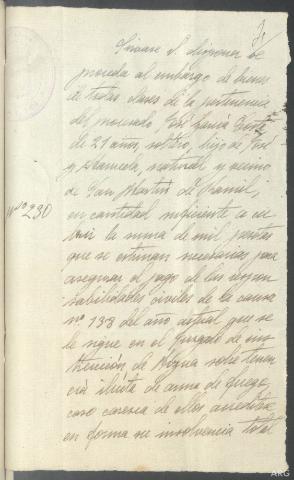 1.
Sírvase S. disponer se
proceda al embargo de bienes
de todas clases de la pertenencia
del procesado José García
de 21 años, soltero, hijo de José
y Manuela, natural y vecino
de San Martín de
en cantidad suficiente a cu
brir la suma de mil pesetas
que se estiman necesarias para
asegurar el pago de las respon
sabilidades civiles de la causa
nº 133 del año actual que se
le sigue en el Juzgado de ins
trucción de sobre tenen
cia ilícita de arma de fuego,
caso carezca de ellos acredite
en forma su insolvencia total
Nº 230
ARG